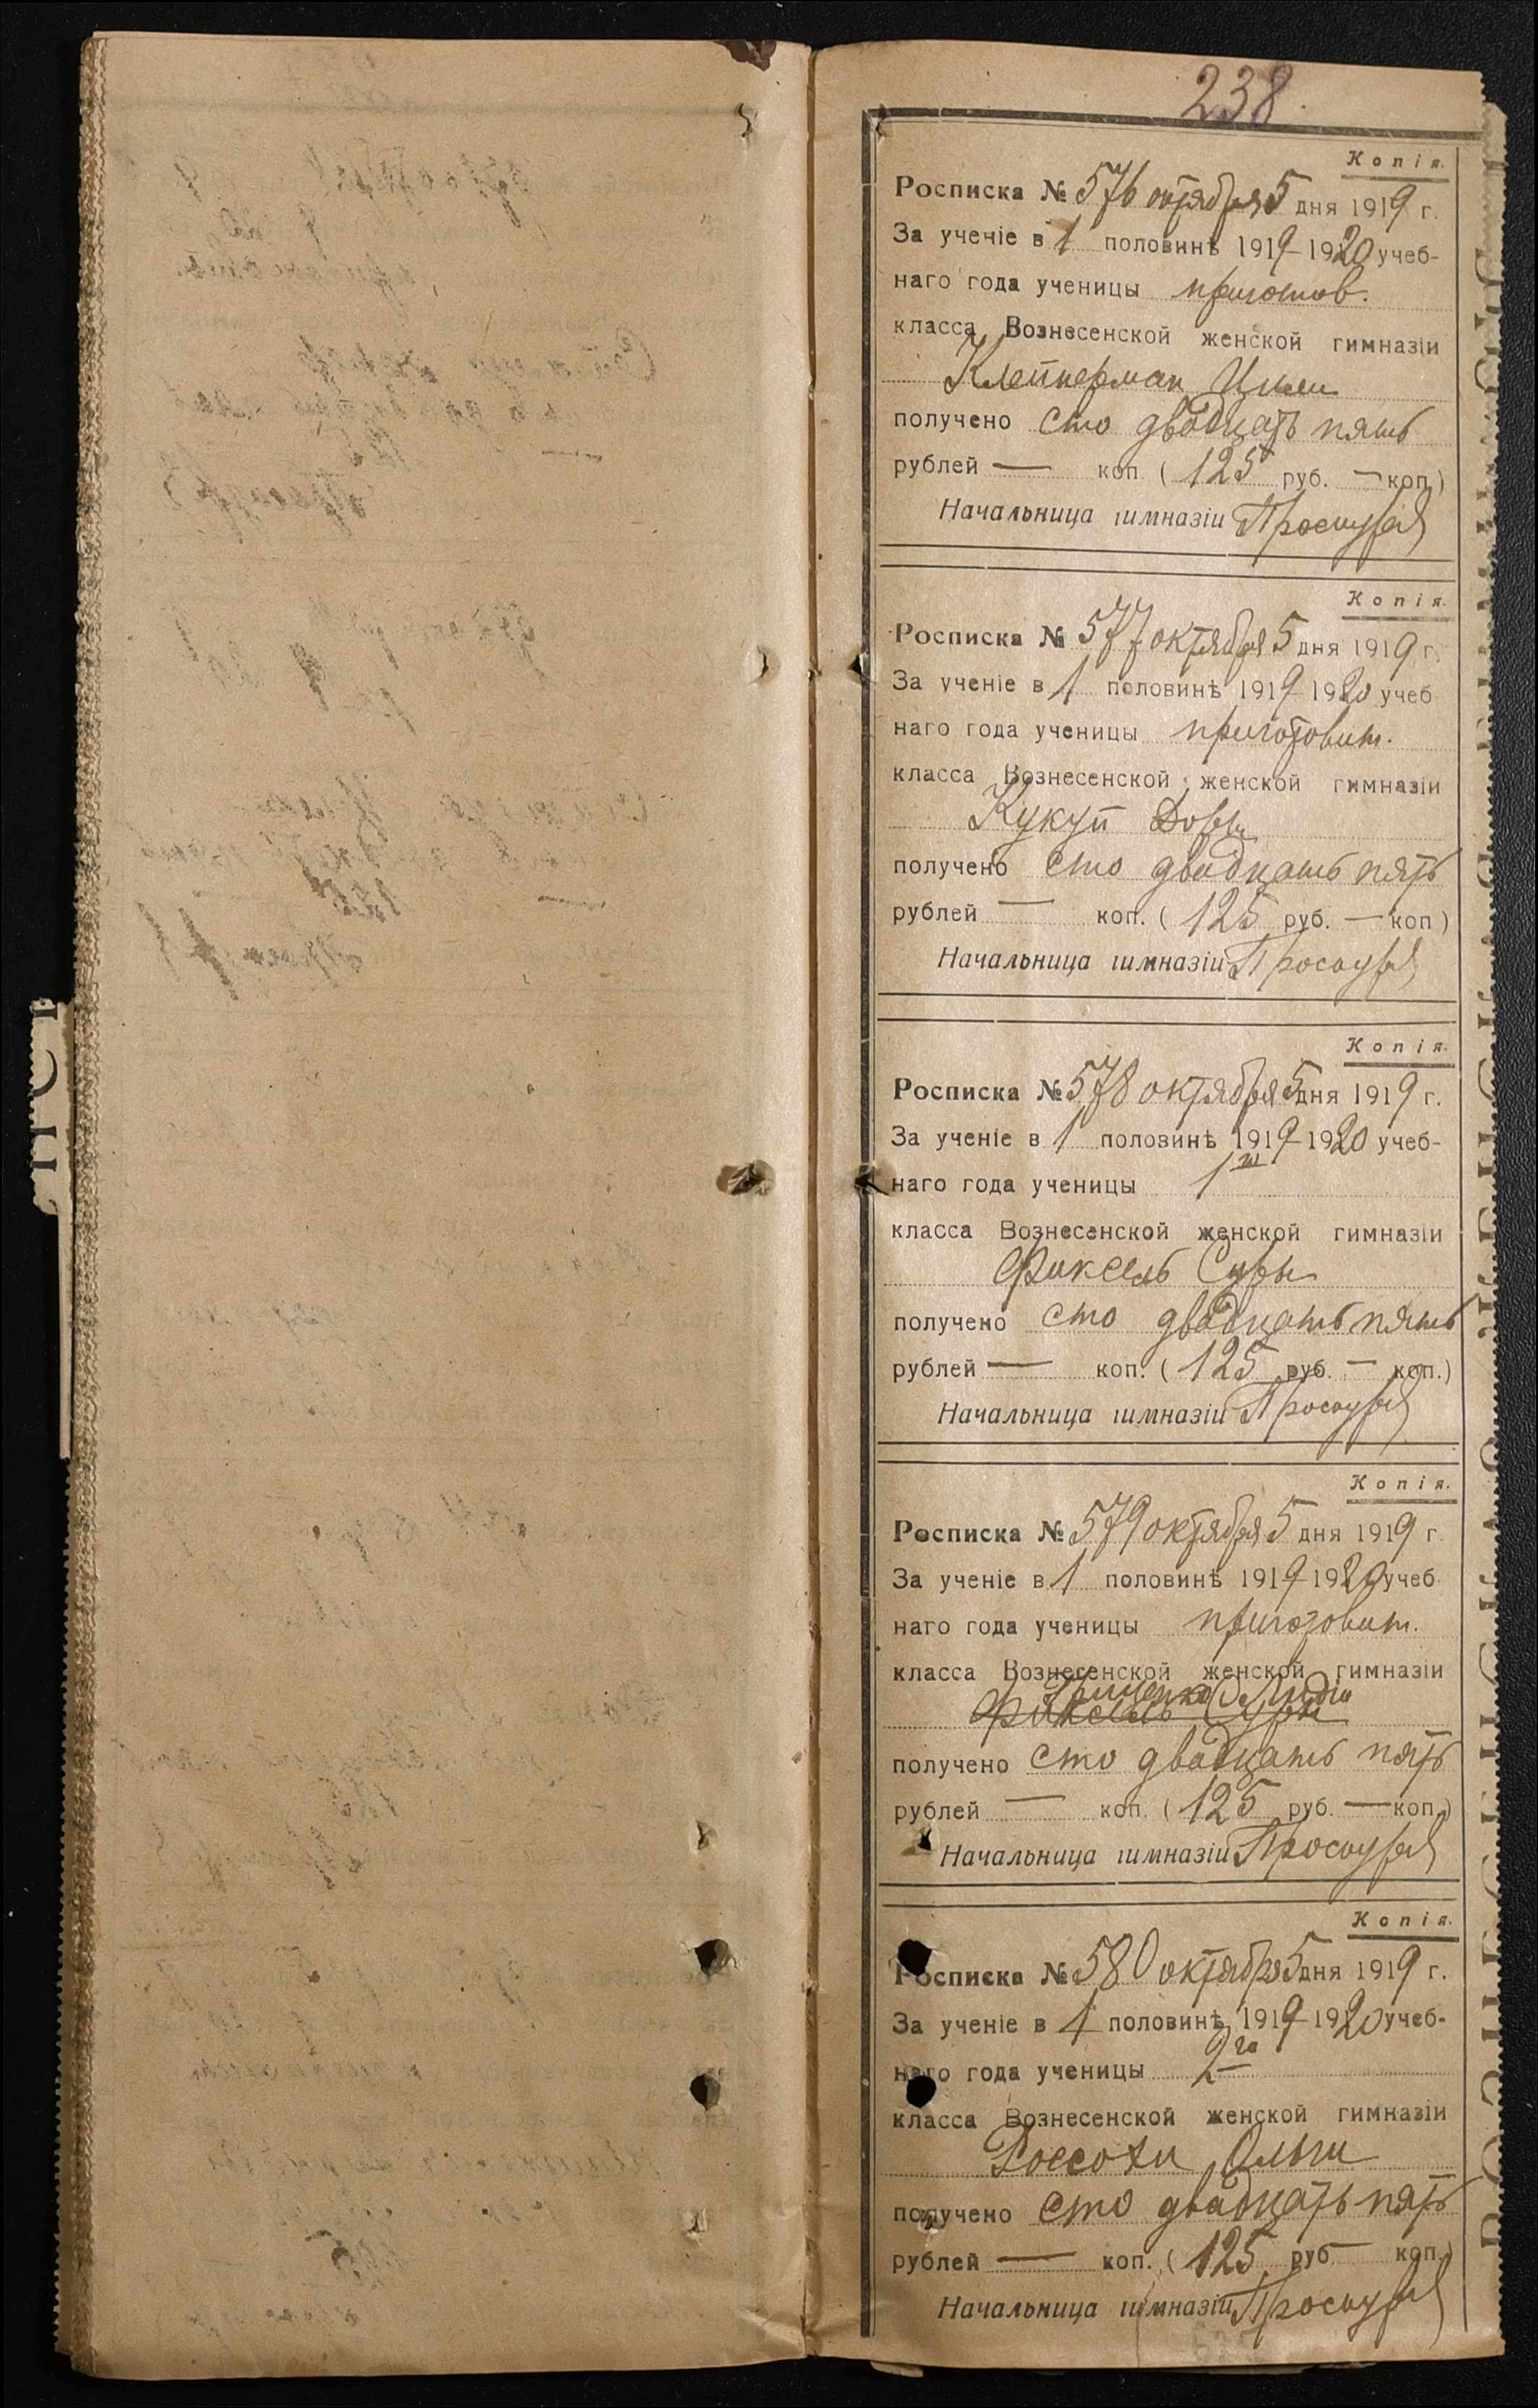 238.
Копія.
Росписка № 576 октября 5 дня 1919 г.
За ученіе в 1 половинѣ 1919-1920 учеб-
наго года ученицы приготов.
класса Вознесенской женской гимназіи
Клейнерман Цили
получено сто двадцать пять
рублей — коп. (125 руб. — коп.)
Начальница гимназіи
Копія.
Росписка № 577 октября 5 дня 1919 г.
За ученіе в 1 половинѣ 1919-1920 учеб
наго года ученицы приготовит.
класса Вознесенской женской гимназіи
Кукуй
получено сто двадцать пять
рублей — коп. (125 руб. — коп)
Начальница гимназіи
Копія.
Росписка № 578 октября 5 дня 1919 г.
За ученіе в 1 половинѣ 1919-1920 учеб-
наго года ученицы 1го
класса Вознесенской женской гимназіи
Фиксель Суры
получено сто двадцать пять
рублей — коп. (125 руб. — коп.)
Начальница гимназіи
Копія.
Росписка № 579 октября 5 дня 1919 г.
За ученіе в 1 половинѣ 1919-1920 учеб
наго года ученицы приготовит.
класса Вознесенской женской гимназіи
Лидіи
Фиксель Суры
получено сто двадцать пять
рублей — коп. (125 руб. — коп.)
Начальница гимназіи
Копія.
Росписка № 580 октября 5 дня 1919 г.
За ученіе в 1 половинѣ 1919-1920 учеб-
наго года ученицы 2го
класса Вознесенской женской гимназіи
Россохи Ольги
получено сто двадцать пять
рублей — коп. (125 руб — коп.)
Начальница гимназіи